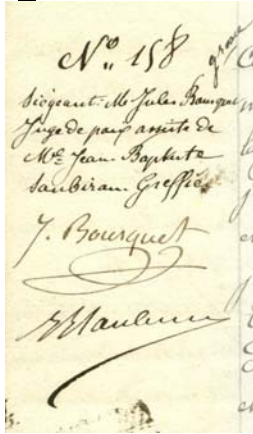 N° 158
grosse
Siégeant: Me Jules Bousquet
Juge de paix assisté de
Me Jean Baptiste
Saubiran Greffier
J. Bousquet